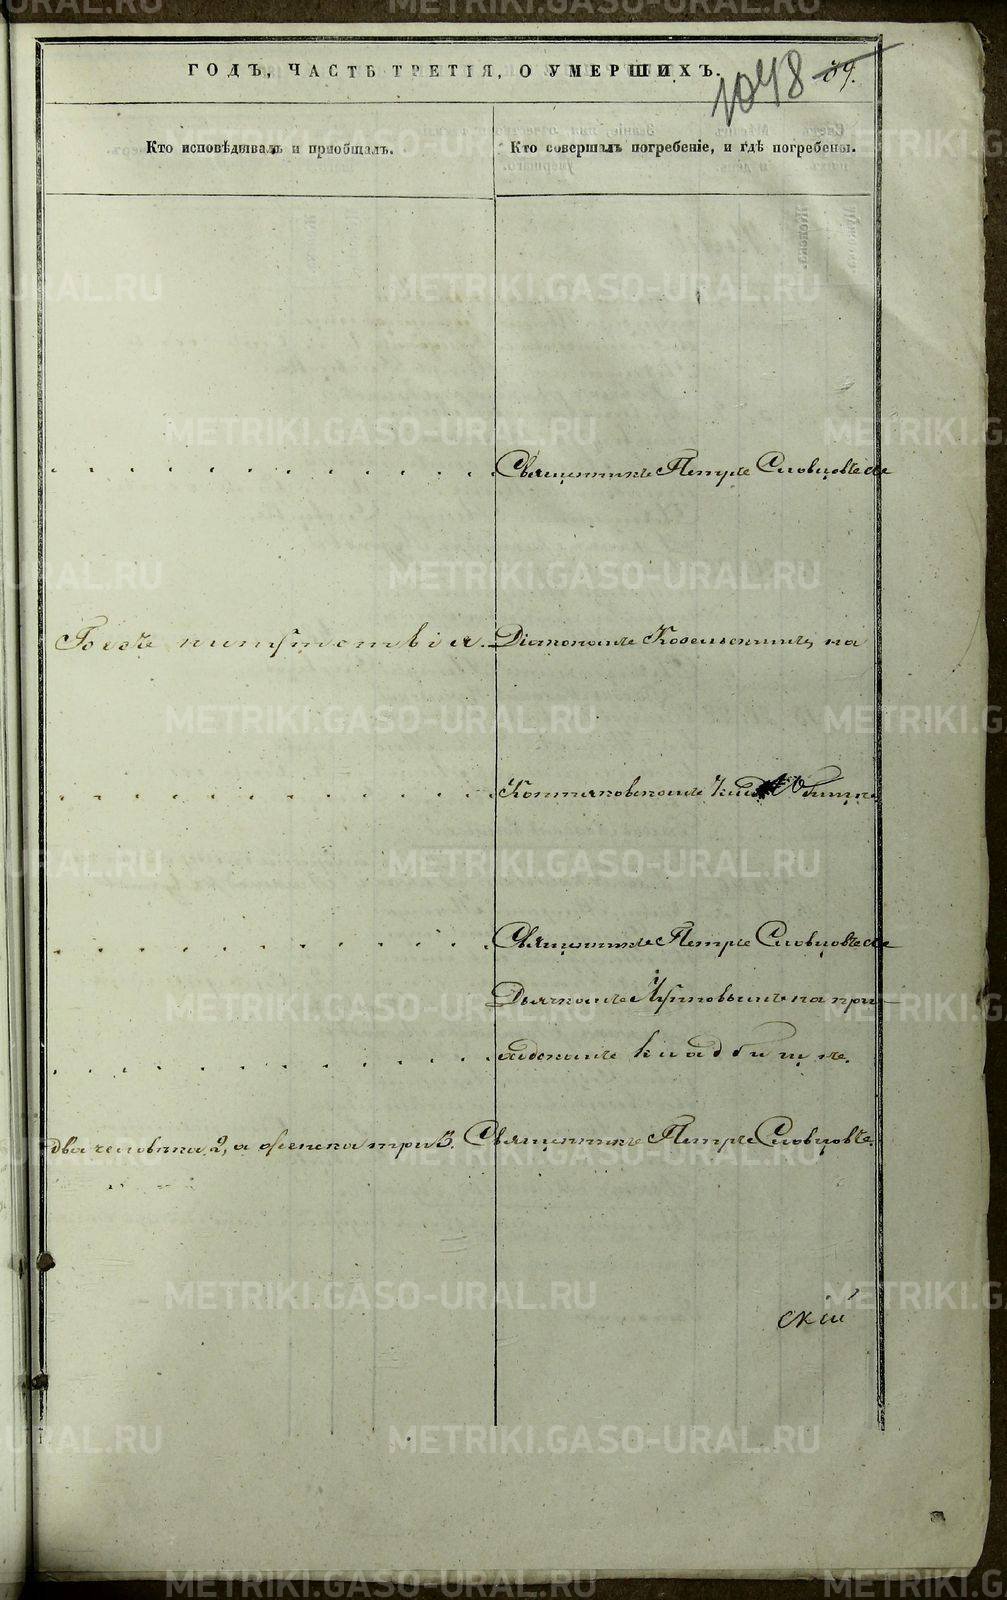 ГОДЪ, ЧАСТЬ ТРЕТІЯ, О УМЕРШИХЪ.
1048 89.
Кто исповѣдывалъ и пріобщалъ.
Кто совершалъ погребеніе, и гдѣ погребены.
Священникъ Петръ Словцовъ съ
Безъ напутствія.
Діакономъ Козельскимъ, на
Коптяковскомъ кладбищѣ
Священникъ Петръ Словцовъ съ
Дьячкомъ на при-
ходскомъ кладбищѣ.
два человѣка 2, а женска три 3.
Священникъ Петръ Словцовъ.
скій
METRIKI.GASO-URAL.RU